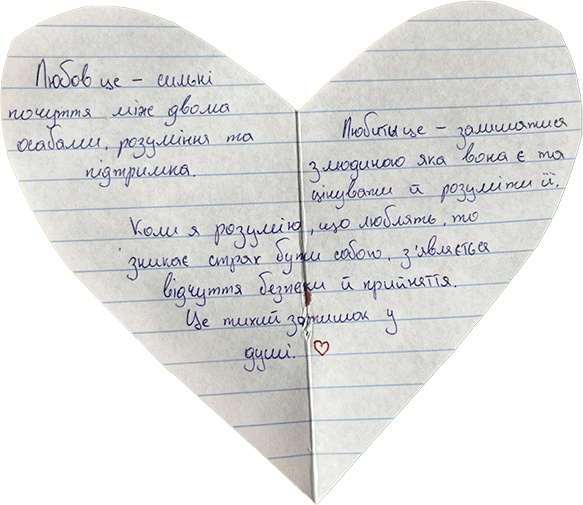 Любов це – сильні
почуття між двома
особами, розуміння та
підтримка.
Любити це – залишатися
злюдиною яка вона є та
цінувати й розуміти її.
Коли я розумію, що люблять, то
зникає страх бути собою, з'являється
відчуття безпеки й прийняття.
Це тихий затишок у
душі.